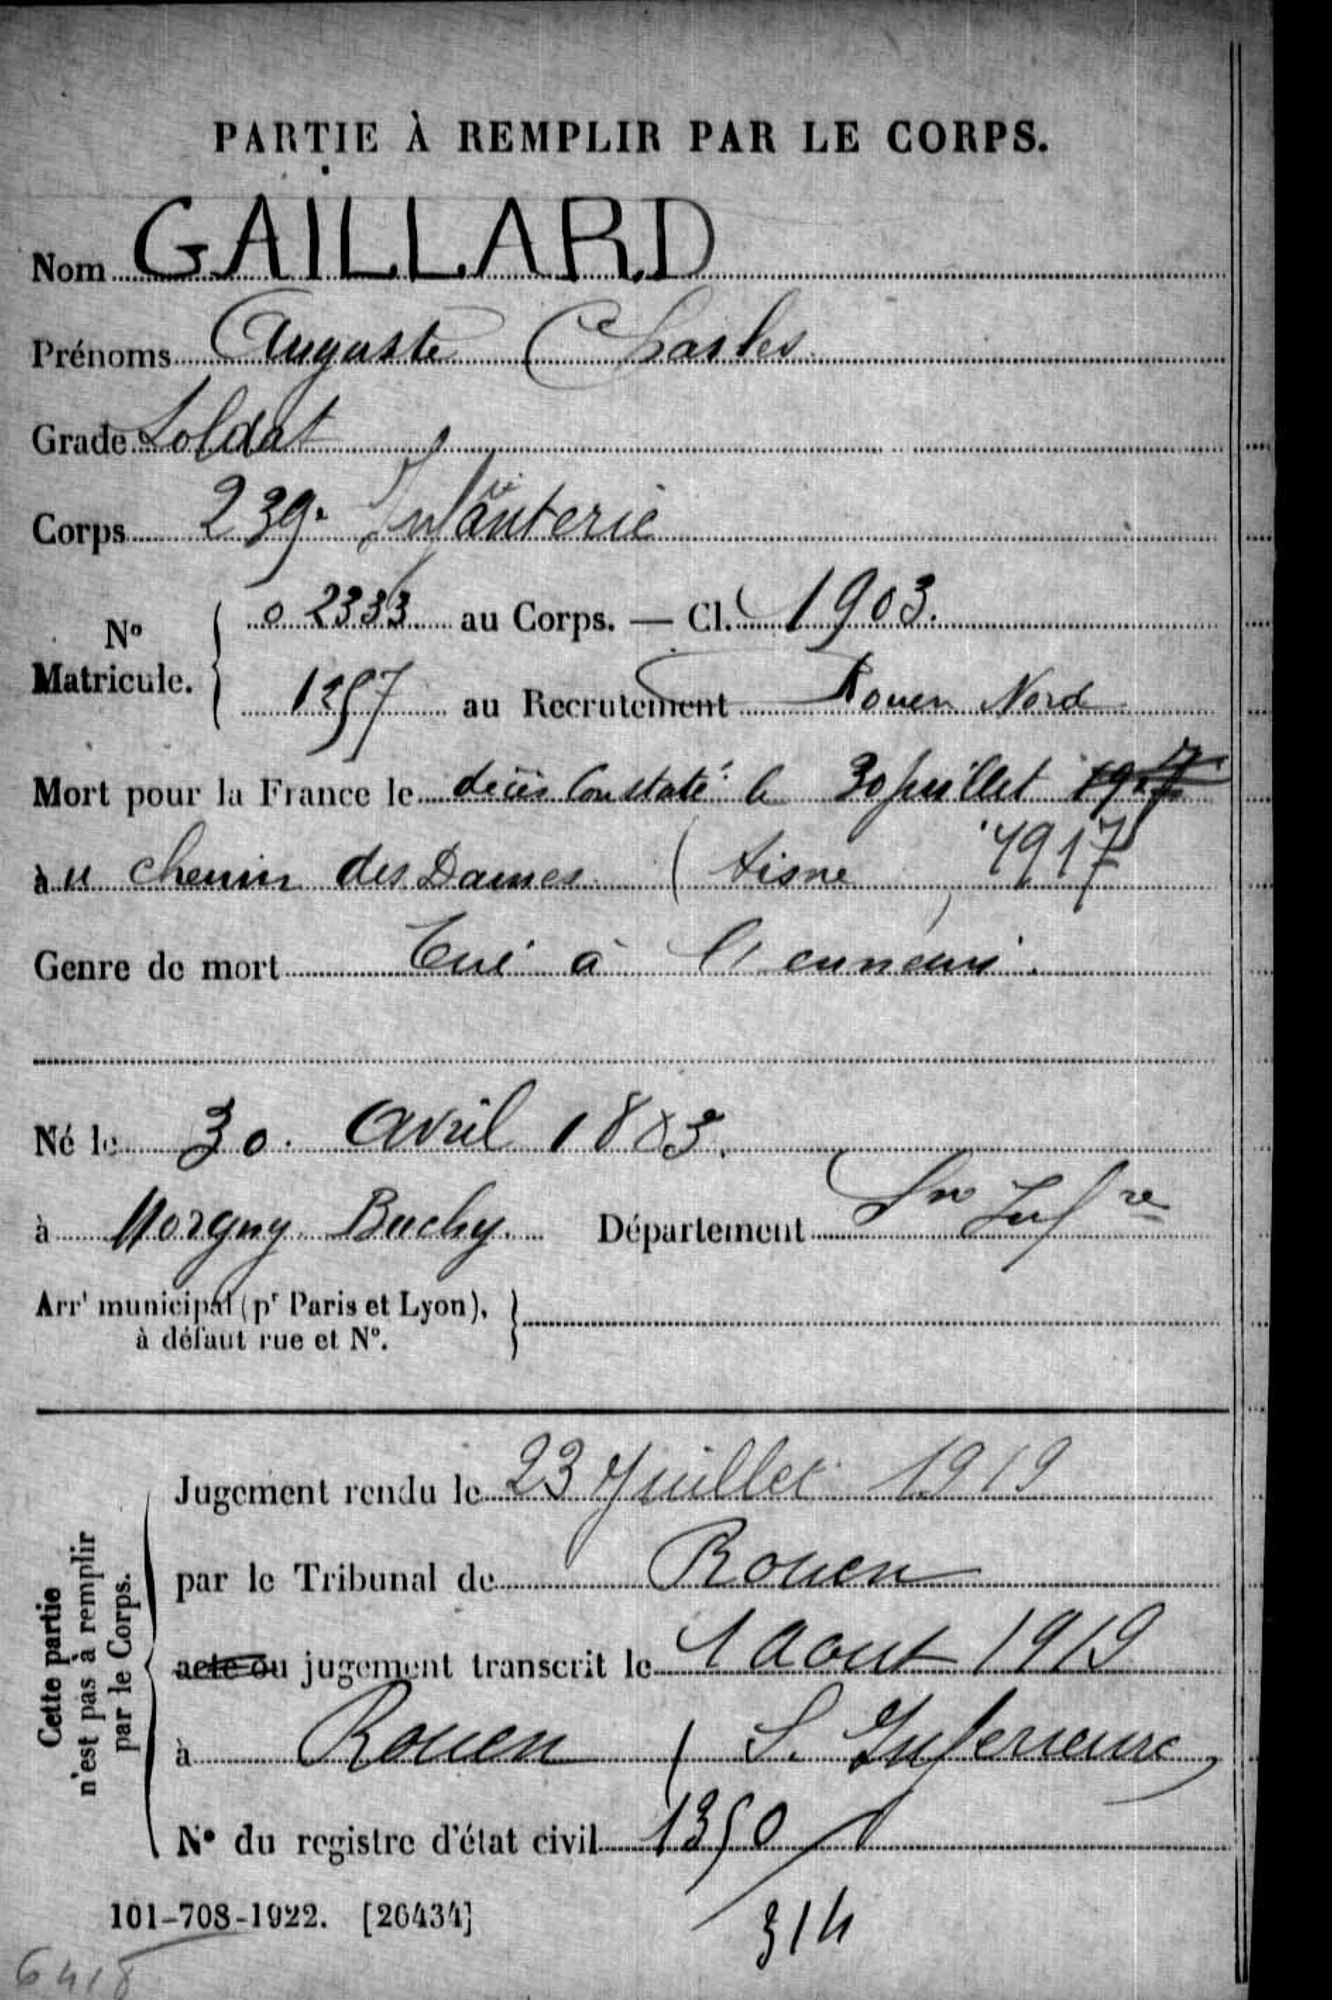 PARTIE À REMPLIR PAR LE CORPS.
Nom GAILLARD
Prénoms Auguste Charles
Grade Soldat
Corps 239e Infanterie
No Matricule. { 0 2333 au Corps. — Cl. 1903.
1257 au Recrutement Rouen Nord
Mort pour la France le décès constaté le 30 juillet 1917
à u chemin des Dames (Aisne) 1917
Genre de mort Tué à l'ennemi.
Né le 30. Avril 1883.
à Morgny Buchy. Département Sne Infre
Arrt municipal (pr Paris et Lyon), à défaut rue et No. }
Cette partie n'est pas à remplir par le Corps.
Jugement rendu le 23 Juillet 1919
par le Tribunal de Rouen
acte ou jugement transcrit le 1 Aout 1919
à Rouen (S. Inferieure)
No du registre d'état civil 1350 /
314
101-708-1922. [26434]
6418